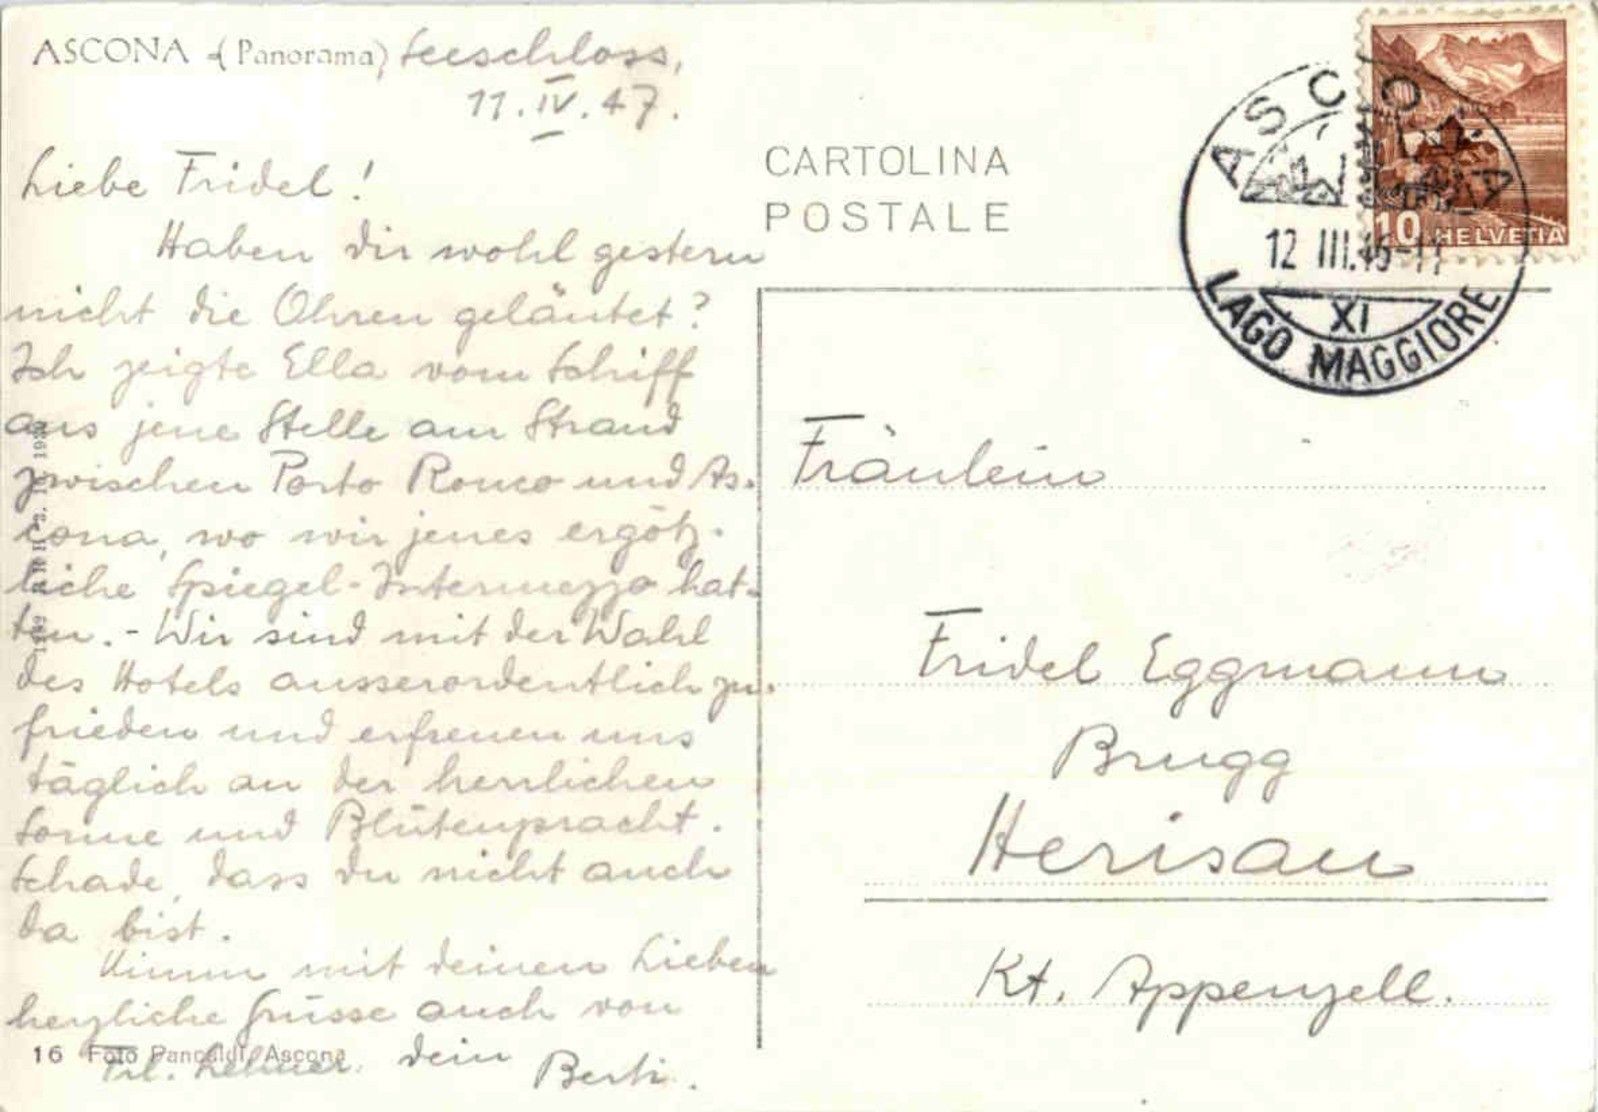 ASCONA (Panorama), Seeschloss,
11. IV. 47.
Liebe Fridel!
Haben dir wohl gestern
nicht die Ohren geläutet?
Ich zeigte Ella vom Schiff
aus jene Stelle am Strand
zwischen Porto Ronco und As-
cona, wo wir jenes ergötz-
liche Spiegel-Intermezzo hat-
ten. - Wir sind mit der Wahl
des Hotels ausserordentlich zu-
frieden und erfreuen uns
täglich an der herrlichen
Sonne und Blütenpracht.
Schade, dass du nicht auch
da bist.
Nimm mit deinen Lieben
herzliche Grüsse auch von
Frl. Lehner. dein Berti.
16 Foto Pancaldi, Ascona
CARTOLINA
POSTALE
ASCONA
12 III.
XI
LAGO MAGGIORE
10 HELVETIA
Fräulein
Fridel Eggmann
Brugg
Herisau
Kt. Appenzell.